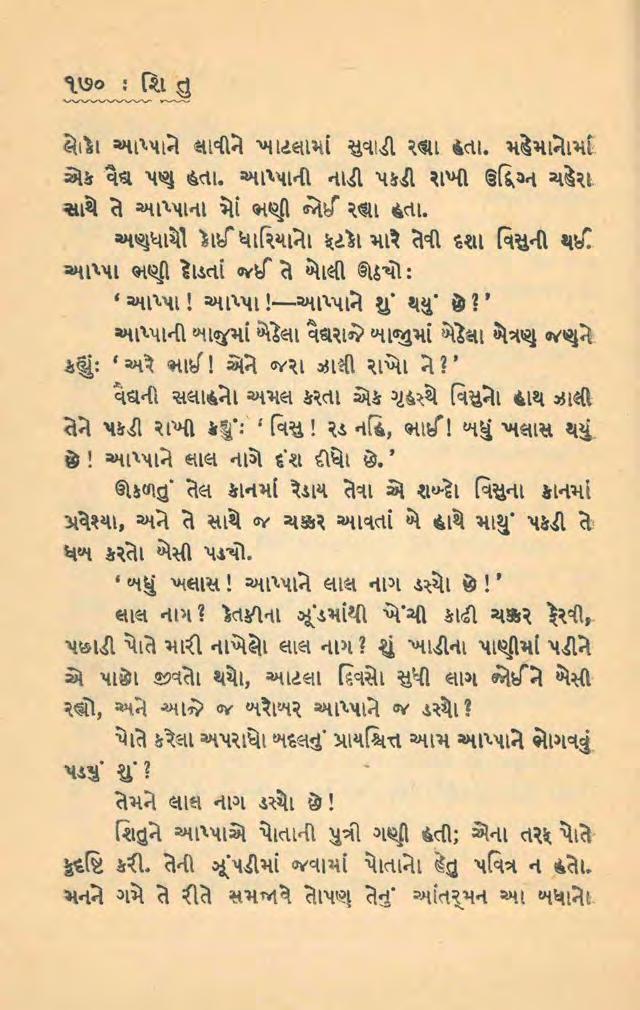 ૧૭૦ : શિ તુ
લોકો આપ્પાને લાવીને ખાટલામાં સુવાડી રહ્યા હતા. મહેમાનોમાં
એક વૈદ્ય પણ હતા. આપ્પાની નાડી પકડી રાખી ઉદ્વિગ્ન ચહેરા
સાથે તે આપ્પાના મોં ભણી જોઈ રહ્યા હતા.
અણધાર્યો કોઈ ધારિયાનો ફટકો મારે તેવી દશા વિસુની થઈ.
આપ્પા ભણી દોડતાં જઈ તે બોલી ઊઠ્યો :
‘ આપ્પા ! આપ્પા !—આપ્પાને શું થયું છે ? ’
આપ્પાની બાજુમાં બેઠેલા વૈદ્યરાજે બાજીમાં બેઠેલા બેત્રણ જણને
કહ્યું: ‘ અરે ભાઈ ! એને જરા ઝાલી રાખો ને ? ’
વૈદ્યની સલાહનો અમલ કરતા એક ગૃહસ્થે વિસુનો હાથ ઝાલી
તેને પકડી રાખી કહ્યું: ‘ વિસુ ! રડ નહિ, ભાઈ ! બધું ખલાસ થયું
છે ! આપ્પાને લાલ નાગે દંશ દીધો છે. ’
ઊકળતું તેલ કાનમાં રેડાય તેવા એ શબ્દો વિસુના કાનમાં
પ્રવેશ્યા, અને તે સાથે જ ચક્કર આવતાં બે હાથે માથું પકડી તે
ધબ કરતો બેસી પડ્યો.
‘ બધું ખલાસ ! આપ્પાને લાલ નાગ ડસ્યો છે ! ’
લાલ નાગ ? કેતકીના ઝૂંડમાંથી ખેંચી કાઢી ચક્કર ફેરવી,
પછાડી પોતે મારી નાખેલો લાલ નાગ ? શું ખાડીના પાણીમાં પડીને
એ પાછો જીવતો થયો, આટલા દિવસો સુધી લાગ જોઈને બેસી
રહ્યો, અને આજે જ બરોબર આપ્પાને જ ડસ્યો ?
પોતે કરેલા અપરાધો બદલનું પ્રાયશ્ચિત્ત આમ આપ્પાને ભોગવવું
પડ્યું શું ?
તેમને લાલ નાગ ડસ્યો છે !
શિતુને આપ્પાએ પોતાની પુત્રી ગણી હતી; એના તરફ પોતે
કુદૃષ્ટિ કરી. તેની ઝૂંપડીમાં જવામાં પોતાનો હેતુ પવિત્ર ન હતો.
મનને ગમે તે રીતે સમજાવે તોપણ તેનું આંતર્મન આ બધાનો